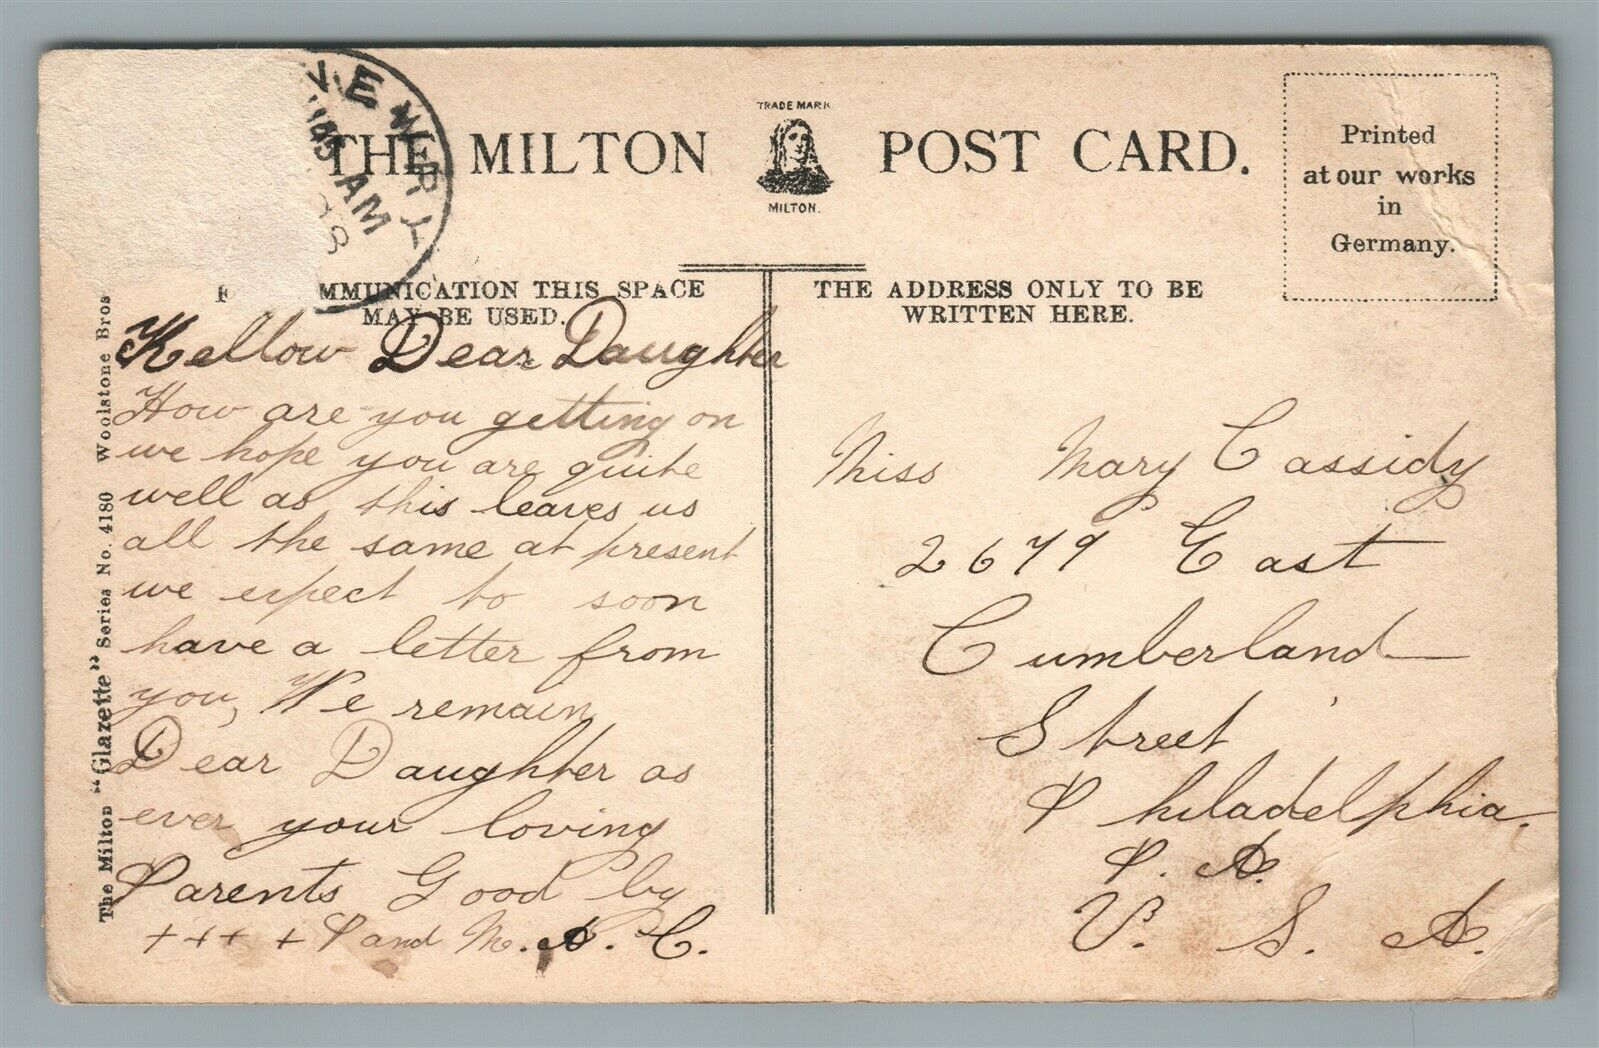 THE MILTON POST CARD.
TRADE MARK
MILTON.
Printed
at our works
in
Germany.
MMUNICATION THIS SPACE
MAY BE USED.
THE ADDRESS ONLY TO BE
WRITTEN HERE.
VE MERY
AM
The Milton "Glazette" Series No. 4180 Woolstone Bros
Hellow Dear Daughter
How are you getting on
we hope you are quite
well as this leaves us
all the same at present
we expect to soon
have a letter from
you, We remain
Dear Daughter as
ever your loving
Parents Good by
+ + + + P and M. A. C.
Miss Mary Cassidy
2679 East
Cumberland
Street
Philadelphia.
P. A.
U. S. A.